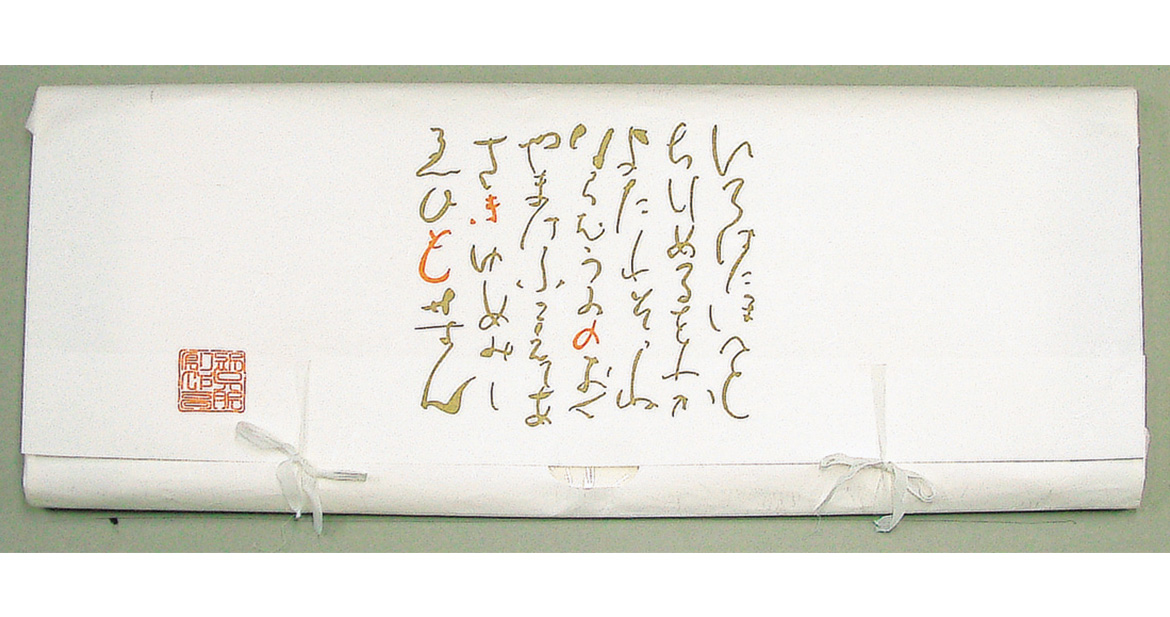 いろはにほへと
ちりぬるをわか
よたれそつね
ならむうゐのおく
やまけふこえてあ
さきゆめみし
ゑひもせすん